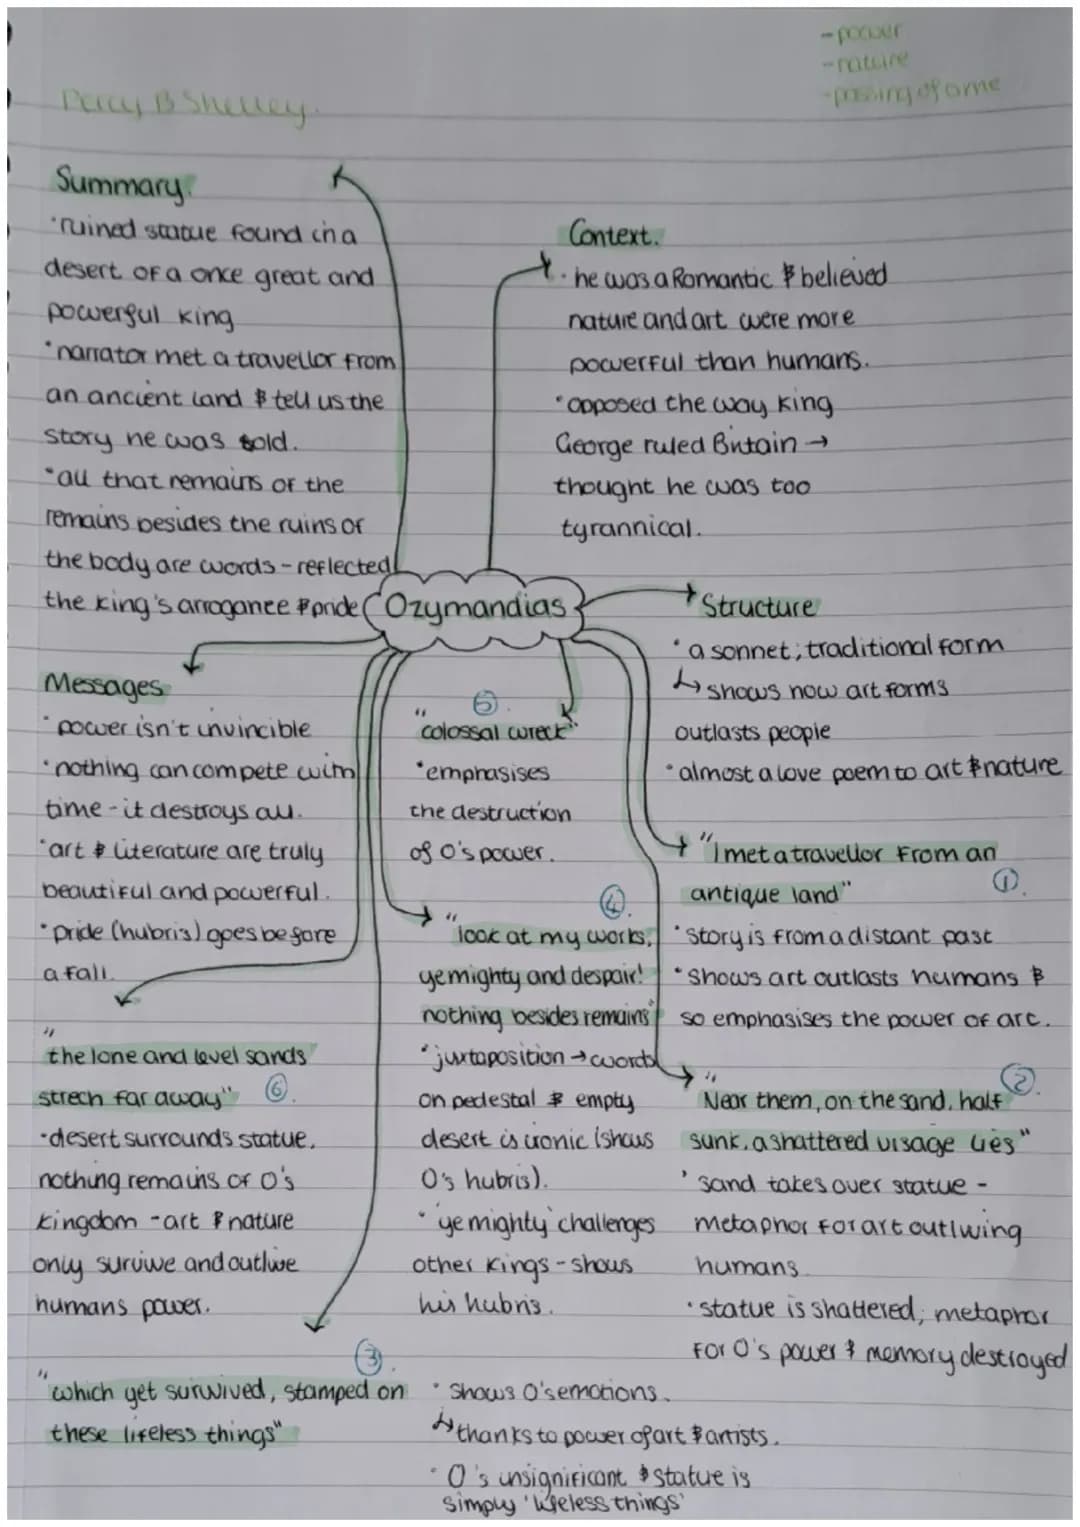 -power
-nature
-passing of time
Percy B Shelley.
Summary.
·ruined statue found in a
desert of a once great and
powerful king
·narrator met a travellor from
an ancient land & tell us the
story he was told.
·all that remains of the
remains besides the ruins of
the body are words - reflected
the king's arrogance & pride
Context.
· he was a Romantic & believed
nature and art were more
powerful than humans.
·opposed the way King
George ruled Britain →
thought he was too
tyrannical.
Ozymandias
Structure
· a sonnet; traditional form
↳ shows how art forms
outlasts people
·almost a love poem to art & nature
Messages
· power isn't invincible
·nothing can compete with
time - it destroys all.
·art & literature are truly
beautiful and powerful.
·pride (hubris) goes before
a fall.
⑤.
"colossal wreck"
·emphasises
the destruction
of O's power.
"I met a travellor from an
antique land" ①.
·story is from a distant past
·shows art outlasts humans &
so emphasises the power of art.
④.
"look at my works,
ye mighty and despair!
nothing besides remains"
·juxtaposition → words
on pedestal & empty
desert is ironic (shows
O's hubris).
· 'ye mighty' challenges
other kings - shows
his hubris.
②.
"Near them, on the sand, half
sunk, a shattered visage lies"
· sand takes over statue -
metaphor for art outliving
humans
·statue is shattered, metaphor
for O's power & memory destroyed
"the lone and level sands
strech far away" ⑥.
·desert surrounds statue,
nothing remains of O's
kingdom - art & nature
only survive and outlive
humans power.
③.
"which yet survived, stamped on
these lifeless things"
· shows O's emotions.
↳ thanks to power of art & artists.
· O's insignificant & statue is
simply 'lifeless things'